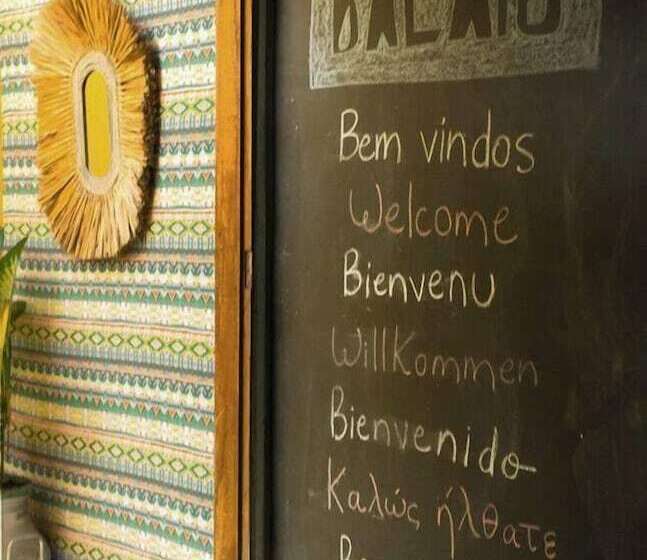 BALAIO
Bem vindos
Welcome
Bienvenu
Willkommen
Bienvenido
Καλώς ήλθατε